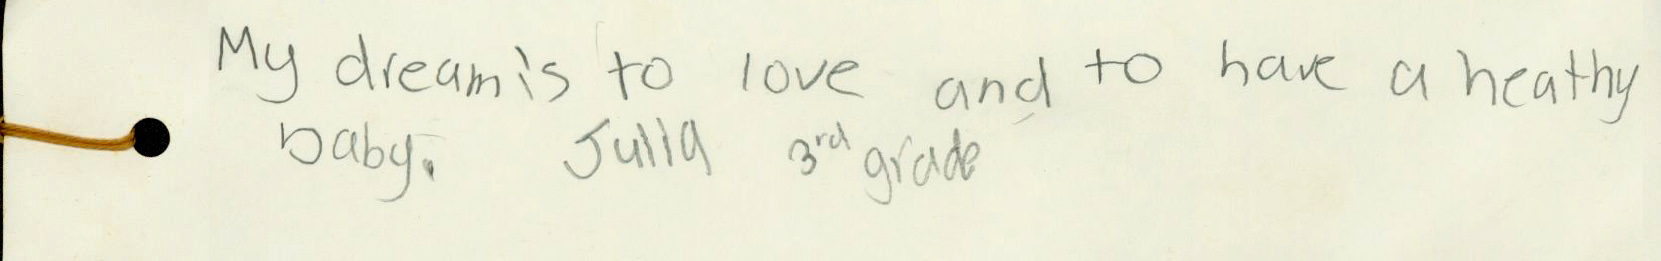 My dream is to love and to have a heathy
baby. Julia 3rd grade